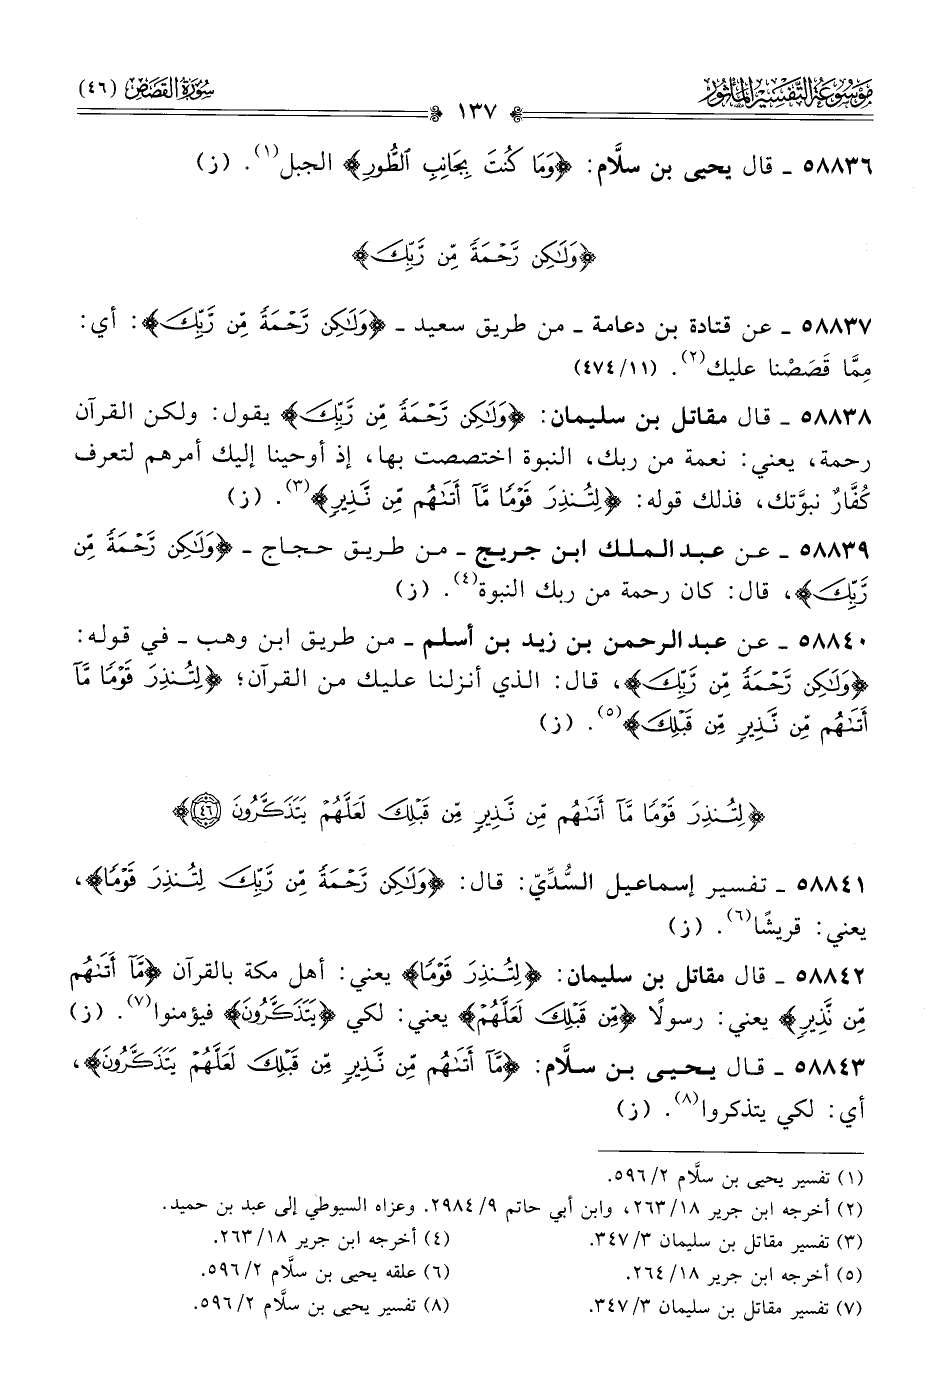 مَوْسُوعَة التَّفْسِير المَأْثُور
سُورَةُ القَصَصِ (٤٦)
١٣٧
٥٨٨٣٦ ـ قال يحيى بن سلَّام: ﴿وَمَا كُنتَ بِجَانِبِ ٱلطُّورِ﴾ الجبل(١). (ز)
﴿وَلَٰكِن رَّحْمَةً مِّن رَّبِّكَ﴾
٥٨٨٣٧ ـ عن قتادة بن دعامة ـ من طريق سعيد ـ ﴿وَلَٰكِن رَّحْمَةً مِّن رَّبِّكَ﴾: أي:
مِمَّا قَصَصْنا عليك(٢). (١١/ ٤٧٤)
٥٨٨٣٨ ـ قال مقاتل بن سليمان: ﴿وَلَٰكِن رَّحْمَةً مِّن رَّبِّكَ﴾ يقول: ولكن القرآن
رحمة، يعني: نعمة من ربك، النبوة اختصصت بها، إذ أوحينا إليك أمرهم لتعرف
كُفَّارٌ نبوَّتك، فذلك قوله: ﴿لِتُنذِرَ قَوْمًا مَّآ أَتَىٰهُم مِّن نَّذِيرٍ﴾(٣). (ز)
٥٨٨٣٩ ـ عن عبد الملك ابن جريج ـ من طريق حجاج ـ ﴿وَلَٰكِن رَّحْمَةً مِّن
رَّبِّكَ﴾، قال: كان رحمة من ربك النبوة(٤). (ز)
٥٨٨٤٠ ـ عن عبد الرحمن بن زيد بن أسلم ـ من طريق ابن وهب ـ في قوله:
﴿وَلَٰكِن رَّحْمَةً مِّن رَّبِّكَ﴾، قال: الذي أنزلنا عليك من القرآن؛ ﴿لِتُنذِرَ قَوْمًا مَّآ
أَتَىٰهُم مِّن نَّذِيرٍ مِّن قَبْلِكَ﴾(٥). (ز)
﴿لِتُنذِرَ قَوْمًا مَّآ أَتَىٰهُم مِّن نَّذِيرٍ مِّن قَبْلِكَ لَعَلَّهُمْ يَتَذَكَّرُونَ ٤٦﴾
٥٨٨٤١ ـ تفسير إسماعيل السُّدِّيّ: قال: ﴿وَلَٰكِن رَّحْمَةً مِّن رَّبِّكَ لِتُنذِرَ قَوْمًا﴾،
يعني: قريشًا(٦). (ز)
٥٨٨٤٢ ـ قال مقاتل بن سليمان: ﴿لِتُنذِرَ قَوْمًا﴾ يعني: أهل مكة بالقرآن ﴿مَّآ أَتَىٰهُم
مِّن نَّذِيرٍ﴾ يعني: رسولًا ﴿مِّن قَبْلِكَ لَعَلَّهُمْ﴾ يعني: لكي ﴿يَتَذَكَّرُونَ﴾ فيؤمنوا(٧). (ز)
٥٨٨٤٣ ـ قال يحيى بن سلَّام: ﴿مَّآ أَتَىٰهُم مِّن نَّذِيرٍ مِّن قَبْلِكَ لَعَلَّهُمْ يَتَذَكَّرُونَ﴾،
أي: لكي يتذكروا(٨). (ز)
(١) تفسير يحيى بن سلَّام ٢/ ٥٩٦.
(٢) أخرجه ابن جرير ١٨/ ٢٦٣، وابن أبي حاتم ٩/ ٢٩٨٤. وعزاه السيوطي إلى عبد بن حميد.
(٣) تفسير مقاتل بن سليمان ٣/ ٣٤٧.
(٤) أخرجه ابن جرير ١٨/ ٢٦٣.
(٥) أخرجه ابن جرير ١٨/ ٢٦٤.
(٦) علقه يحيى بن سلَّام ٢/ ٥٩٦.
(٧) تفسير مقاتل بن سليمان ٣/ ٣٤٧.
(٨) تفسير يحيى بن سلَّام ٢/ ٥٩٦.